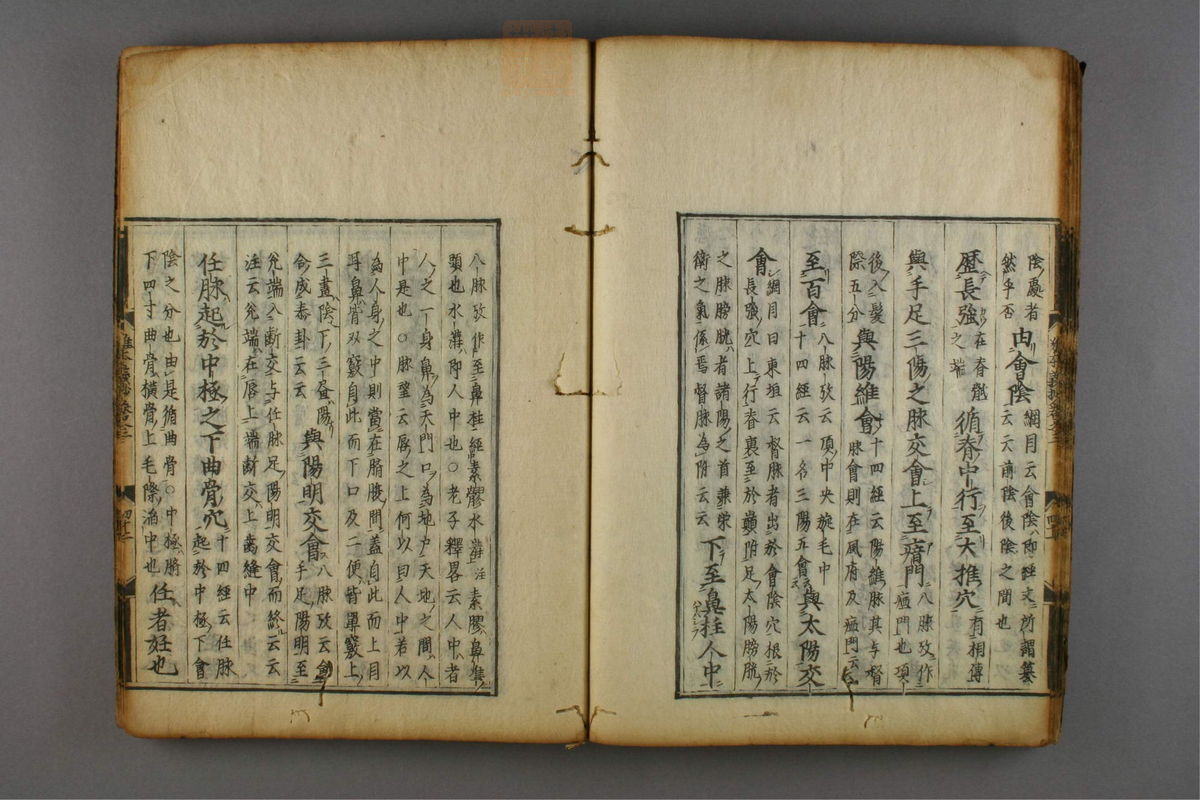 陰處者
然乎否
由會陰
綱目云會陰即經文所謂纂
云云前陰後陰之間也
歷長強
在脊骶
之端
循脊中行至大推穴
有相傳
與手足三陽之脉交會上至瘖門
八脉攷作
瘂門也項
後入髮
際五分
與陽維會
十四經云陽維脉其与督
脉會則在風府及瘂門云云
至百會
八脉攷云頂中央旋毛中
十四經云一名三陽五會
與太陽交
會
綱目曰東垣云督脉者出於會陰穴根於
長強穴上行脊裏至於巔附足太陽膀胱
之脉膀胱者諸陽之首兼榮
衛之氣係焉督脉為附云云
下至鼻柱人中
八脉攷作至鼻柱經素髎水溝上注素膠鼻準
頭也水溝即人中也○老子釋畧云人中者
人之一身鼻為天門口為地户天地之間人
中是也○脉望云唇之上何以曰人中若以
為人身之中則當在臍腹間蓋自此而上目
耳鼻皆双竅自此而下口及二便皆單竅上
三畫陰下三畫陽
合成泰卦云云
與陽明交會
八脉攷云會
手足陽明至
兊端入齗交与任脉足陽明交會而終云云
注云兊端在唇上端齗交上齒縫中
任脉起於中極之下曲骨穴
十四經云任脉
起於中極下會
陰之分也由是循曲骨○中極臍
下四寸曲骨横骨上毛際䧟中也
任者妊也